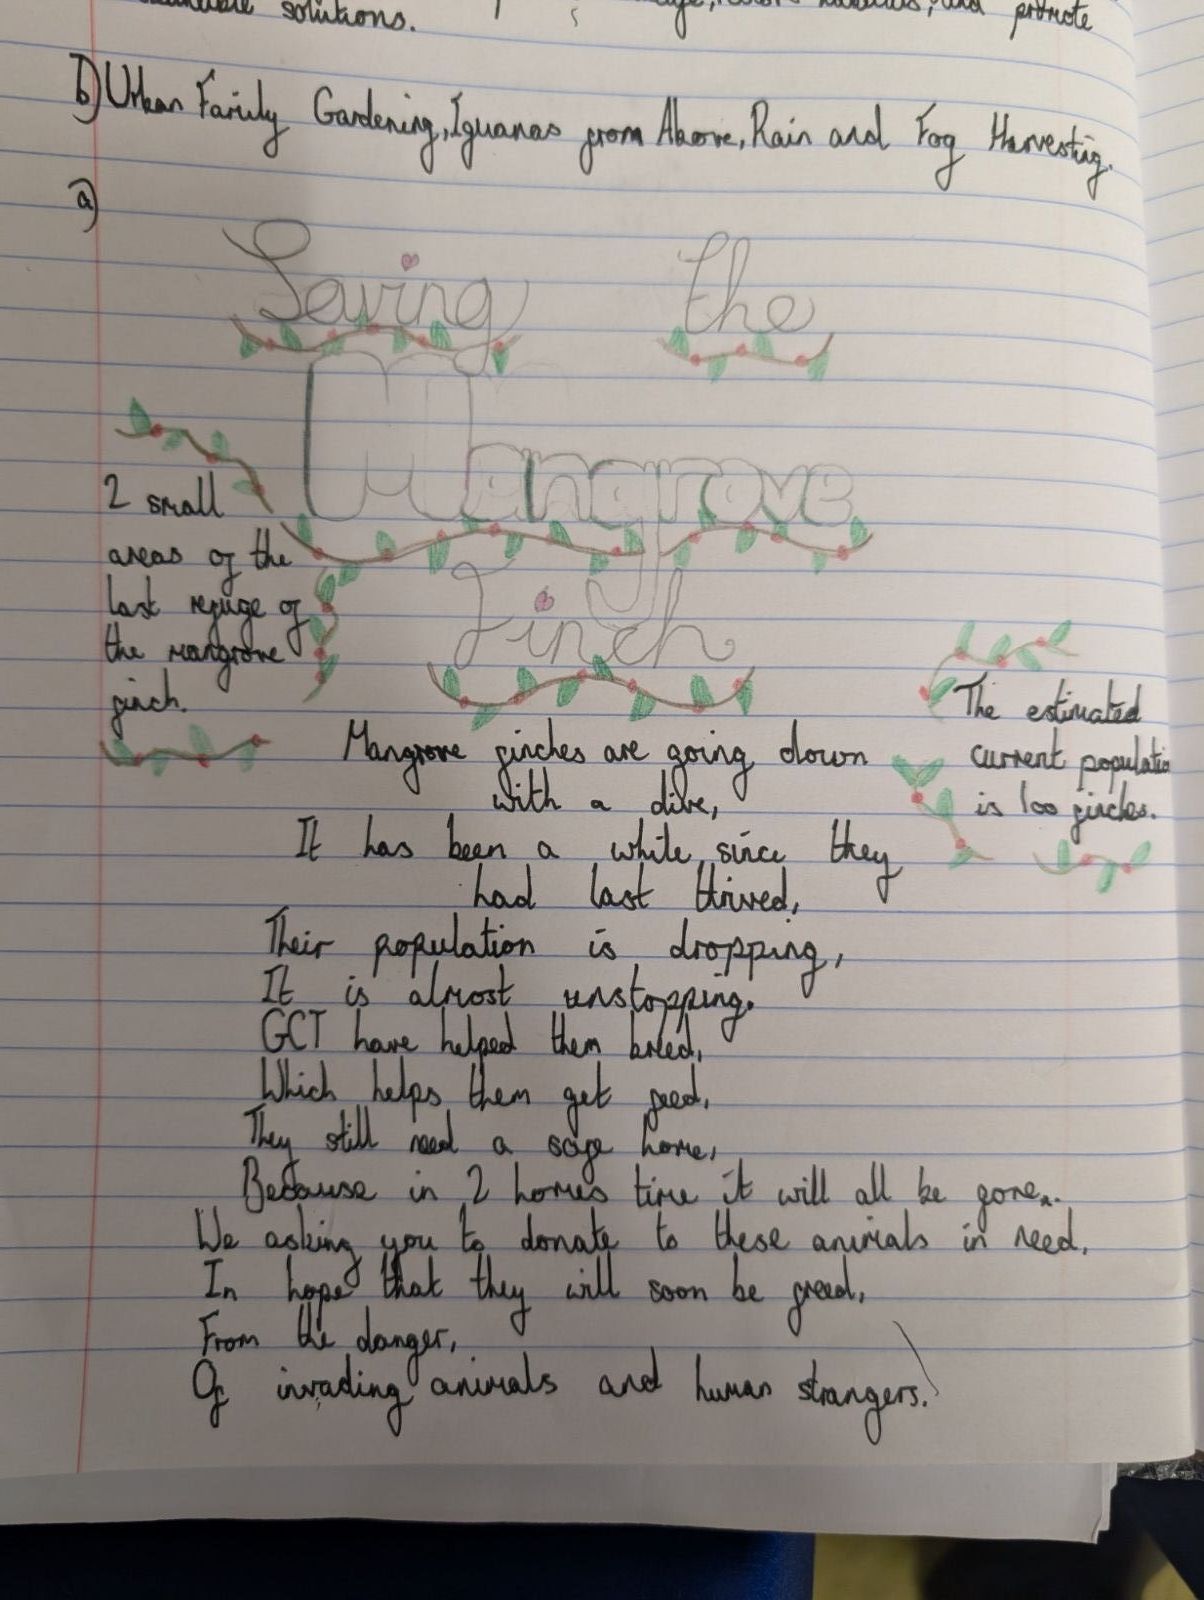 solutions.
and promote
b) Urban Family Gardening, Iguanas from Above, Rain and Fog Harvesting.
a)
Saving the
Mangrove
Finch
2 small
areas of the
last refuge of
the mangrove
finch.
The estimated
current populatio
is 100 finches.
Mangrove finches are going down
with a dive,
It has been a while since they
had last thrived,
Their population is dropping,
It is almost unstopping.
GCT have helped them breed,
Which helps them get feed,
They still need a safe home,
Because in 2 homes time it will all be gone..
We asking you to donate to these animals in need,
In hope that they will soon be freed,
From the danger,
Of invading animals and human strangers.